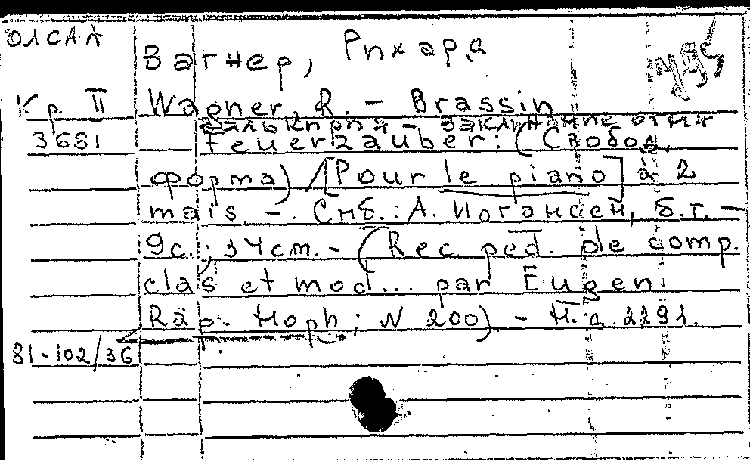 ОЛСАА
Вагнер, Рихард
Кр II
3681
Wagner, R. – Brassin
Валькирия – Заклинание огня
Feuerzauber. (Свобод.
форма) [Pour le piano] à 2
mais. – Спб.: А. Иогансен, б.г. –
9с.; 34см. – (Rec. ped. de comp.
clas et mod... par Eugen.
Rap-Hoph; N 200). – Н.д. 2291.
81-102/36